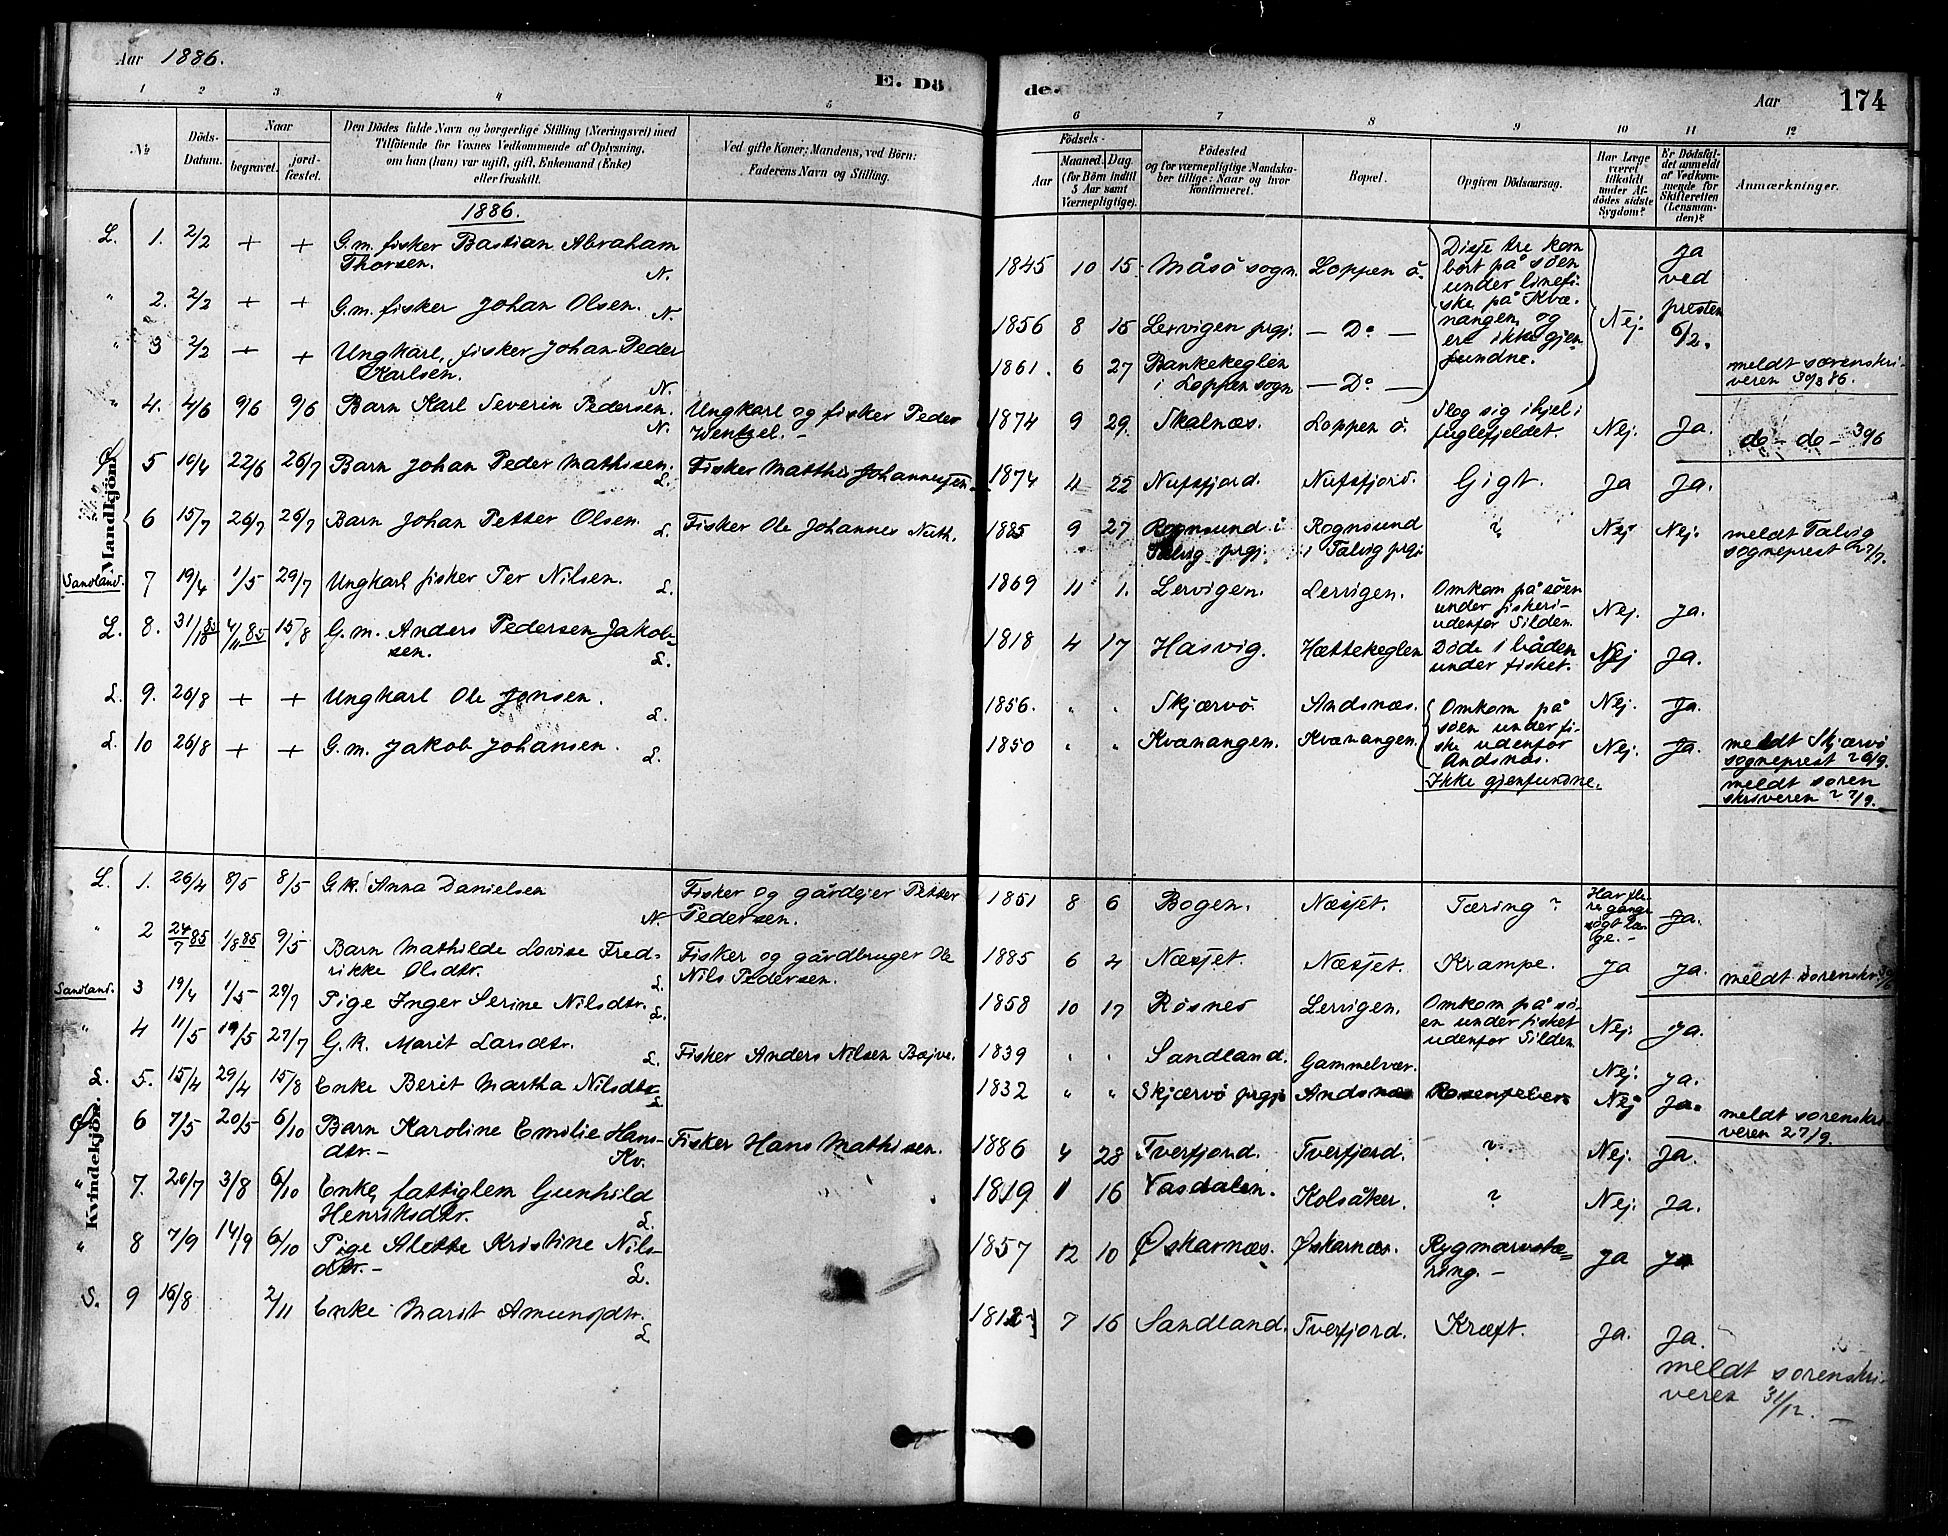 Aar 1886.
E. Dö
de.
Aar
174
1 2 3 4 5
6 7 8 9 10 11 12
№
Döds-Datum.
Naar
begravet.
jord-fæstet.
Den Dödes fulde Navn og borgerlige Stilling (Næringsvei) med
Tilföiende for Voxnes Vedkommende af Oplysning,
om han (hun) var ugift, gift, Enkemand (Enke)
eller fraskilt.
Ved gifte Koner: Mandens, ved Börn:
Faderens Navn og Stilling.
Födsels-
Aar
Maaned. Dag.
(for Börn indtil
5 Aar samt
Værnepligtige).
Födested
og for værnepligtige Mandska-
ber tillige: Naar og hvor
konfirmeret.
Bopæl.
Opgiven Dödsaarsag.
Har Læge
været
tilkaldt
under Af-
dödes sidste
Sygdom?
Er Dödsfal-
det anmeldt
af Vedkom-
mende for
Skifteretten
(Lensman-
den)?
Anmærkninger.
1886.
Mandkjön.
L. 1. 2/2 + + G.m. fisker Bastian Abraham
Thorsen. N.
1845 10 15 Måsö sogn. Loppen ö. Disse tre kom
bort på søen
under linefi-
ske på Kvæ-
nangen, og
ere ikke gjen-
fundne. Nej. Ja
ved
presten
6/2.
" 2. 2/2 + + G.m. fisker Johan Olsen. N.
1856 8 15 Lervigen prgj. — Do —
" 3 2/2 + + Ungkarl, fisker Johan Peder
Karlsen. N.
1861. 6 27 Bankekeglen
i Loppen sogn — Do — meldt sorenskri-
veren 30/3 86.
" 4. 4/6 9/6 9/6 Barn Karl Severin Pedersen. N. Ungkarl og fisker Peder
Wentzel. -
1874 9 29. Skalnæs. Loppen ö. Slog sig ihjel i
fuglefjeldet. Nej. Ja. do - do - 30/6
5 19/4 22/6 26/7 Barn Johan Peder Mathisen. L. Fisker Matthis Johannessen.
1874 4 22 Nufsfjord. Nufsfjord. Gigt. Ja Ja.
6 15/7 26/7 26/7 Barn Johan Petter Olsen. L. Fisker Ole Johannes Nuth.
1885 9 27 Rognsund i
Talvig prgj. Rognsund
i Talvig prgj. ? Nej Nej. meldt Talvig
sogneprest 27/7.
Sandland. 7 19/4 1/5 29/7 Ungkarl fisker Per Nilsen. L.
1869 11 1. Lervigen. Lervigen. Omkom på søen
under fiskeri-
udenfor Silden. Nej. Ja.
L. 8. 31/10 85 4/11 85 15/8 G.m. Anders Pedersen Jakob-
sen. L.
1818 4 17 Hasvig. Hættekeglen Døde i båden
under fisket. Nej Ja.
L. 9. 26/8 + + Ungkarl Ole Jonsen. L.
1856. " " Skjærvö. Andsnæs. Omkom på
søen under fi-
ske udenfor
Andsnæs.
Ikke gjenfundne. Nej. Ja.
L. 10 26/8 + + G.m. Jakob Johansen. L.
1850 " " Kvænangen. Kvænangen. Nej. Ja. meldt Skjærvö
sogneprest 26/9.
meldt soren
skriveren 27/9.
Kvindekjön.
L. 1. 26/4 8/5 8/5 G.k. Anna Danielsen N. Fisker og gårdejer Petter
Pedersen.
1851 8 6 Bogen. Næsset. Tæring? Har fle-
re gange
søgt læ-
ge. - Ja.
" 2 24/7 85 1/8 85 9/5 Barn Mathilde Lovise Fred-
rikke Olsdtr. L. Fisker og gårdbruger Ole
Nils Pedersen.
1885 6 4 Næsset. Næsset. Krampe. Ja Ja. meldt sorenskr.
Sandland. 3 19/4 1/5 29/7 Pige Inger Serine Nilsdtr. L.
1858 10 17 Røsnes Lervigen. Omkom på sø-
en under fisket
udenfor Silden Nej. Ja.
" 4 11/5 19/5 27/7 G.k. Marit Larsdtr. L. Fisker Anders Nilsen Bajve.
1839 " " Sandland. Gammelvær. Nej. Ja.
L. 5. 15/4 29/4 15/8 Enke Berit Martha Nilsdtr. L.
1832 " " Skjærvö prgj. Andsnæs Rosenfeber Nej Ja. meldt sorenskri
veren 27/9.
6 7/5 20/5 6/10 Barn Karoline Emilie Hans-
dtr. - Kv. Fisker Hans Mathisen.
1886 4 28 Tverfjord. Tverfjord. ? Nej. Ja.
" 7. 20/7 3/8 6/10 Enke, fattiglem Gunhild
Henriksdtr. L.
1819 1 16 Vasdalen. Kolsåker. ? Nej. Ja.
" 8 7/9 14/9 6/10 Pige Alette Kristine Nils-
dtr. - L.
1857 12 10 Øskarnæs. Øskarnæs. Rygmarvstæ-
ring. - Ja Ja
S. 9 16/8 2/11 Enke Marit Amundsdtr. L
1812 7 16 Sandland. Tverfjord. Kræft. Ja. Ja.
meldt sorenskri-
veren 31/12. -